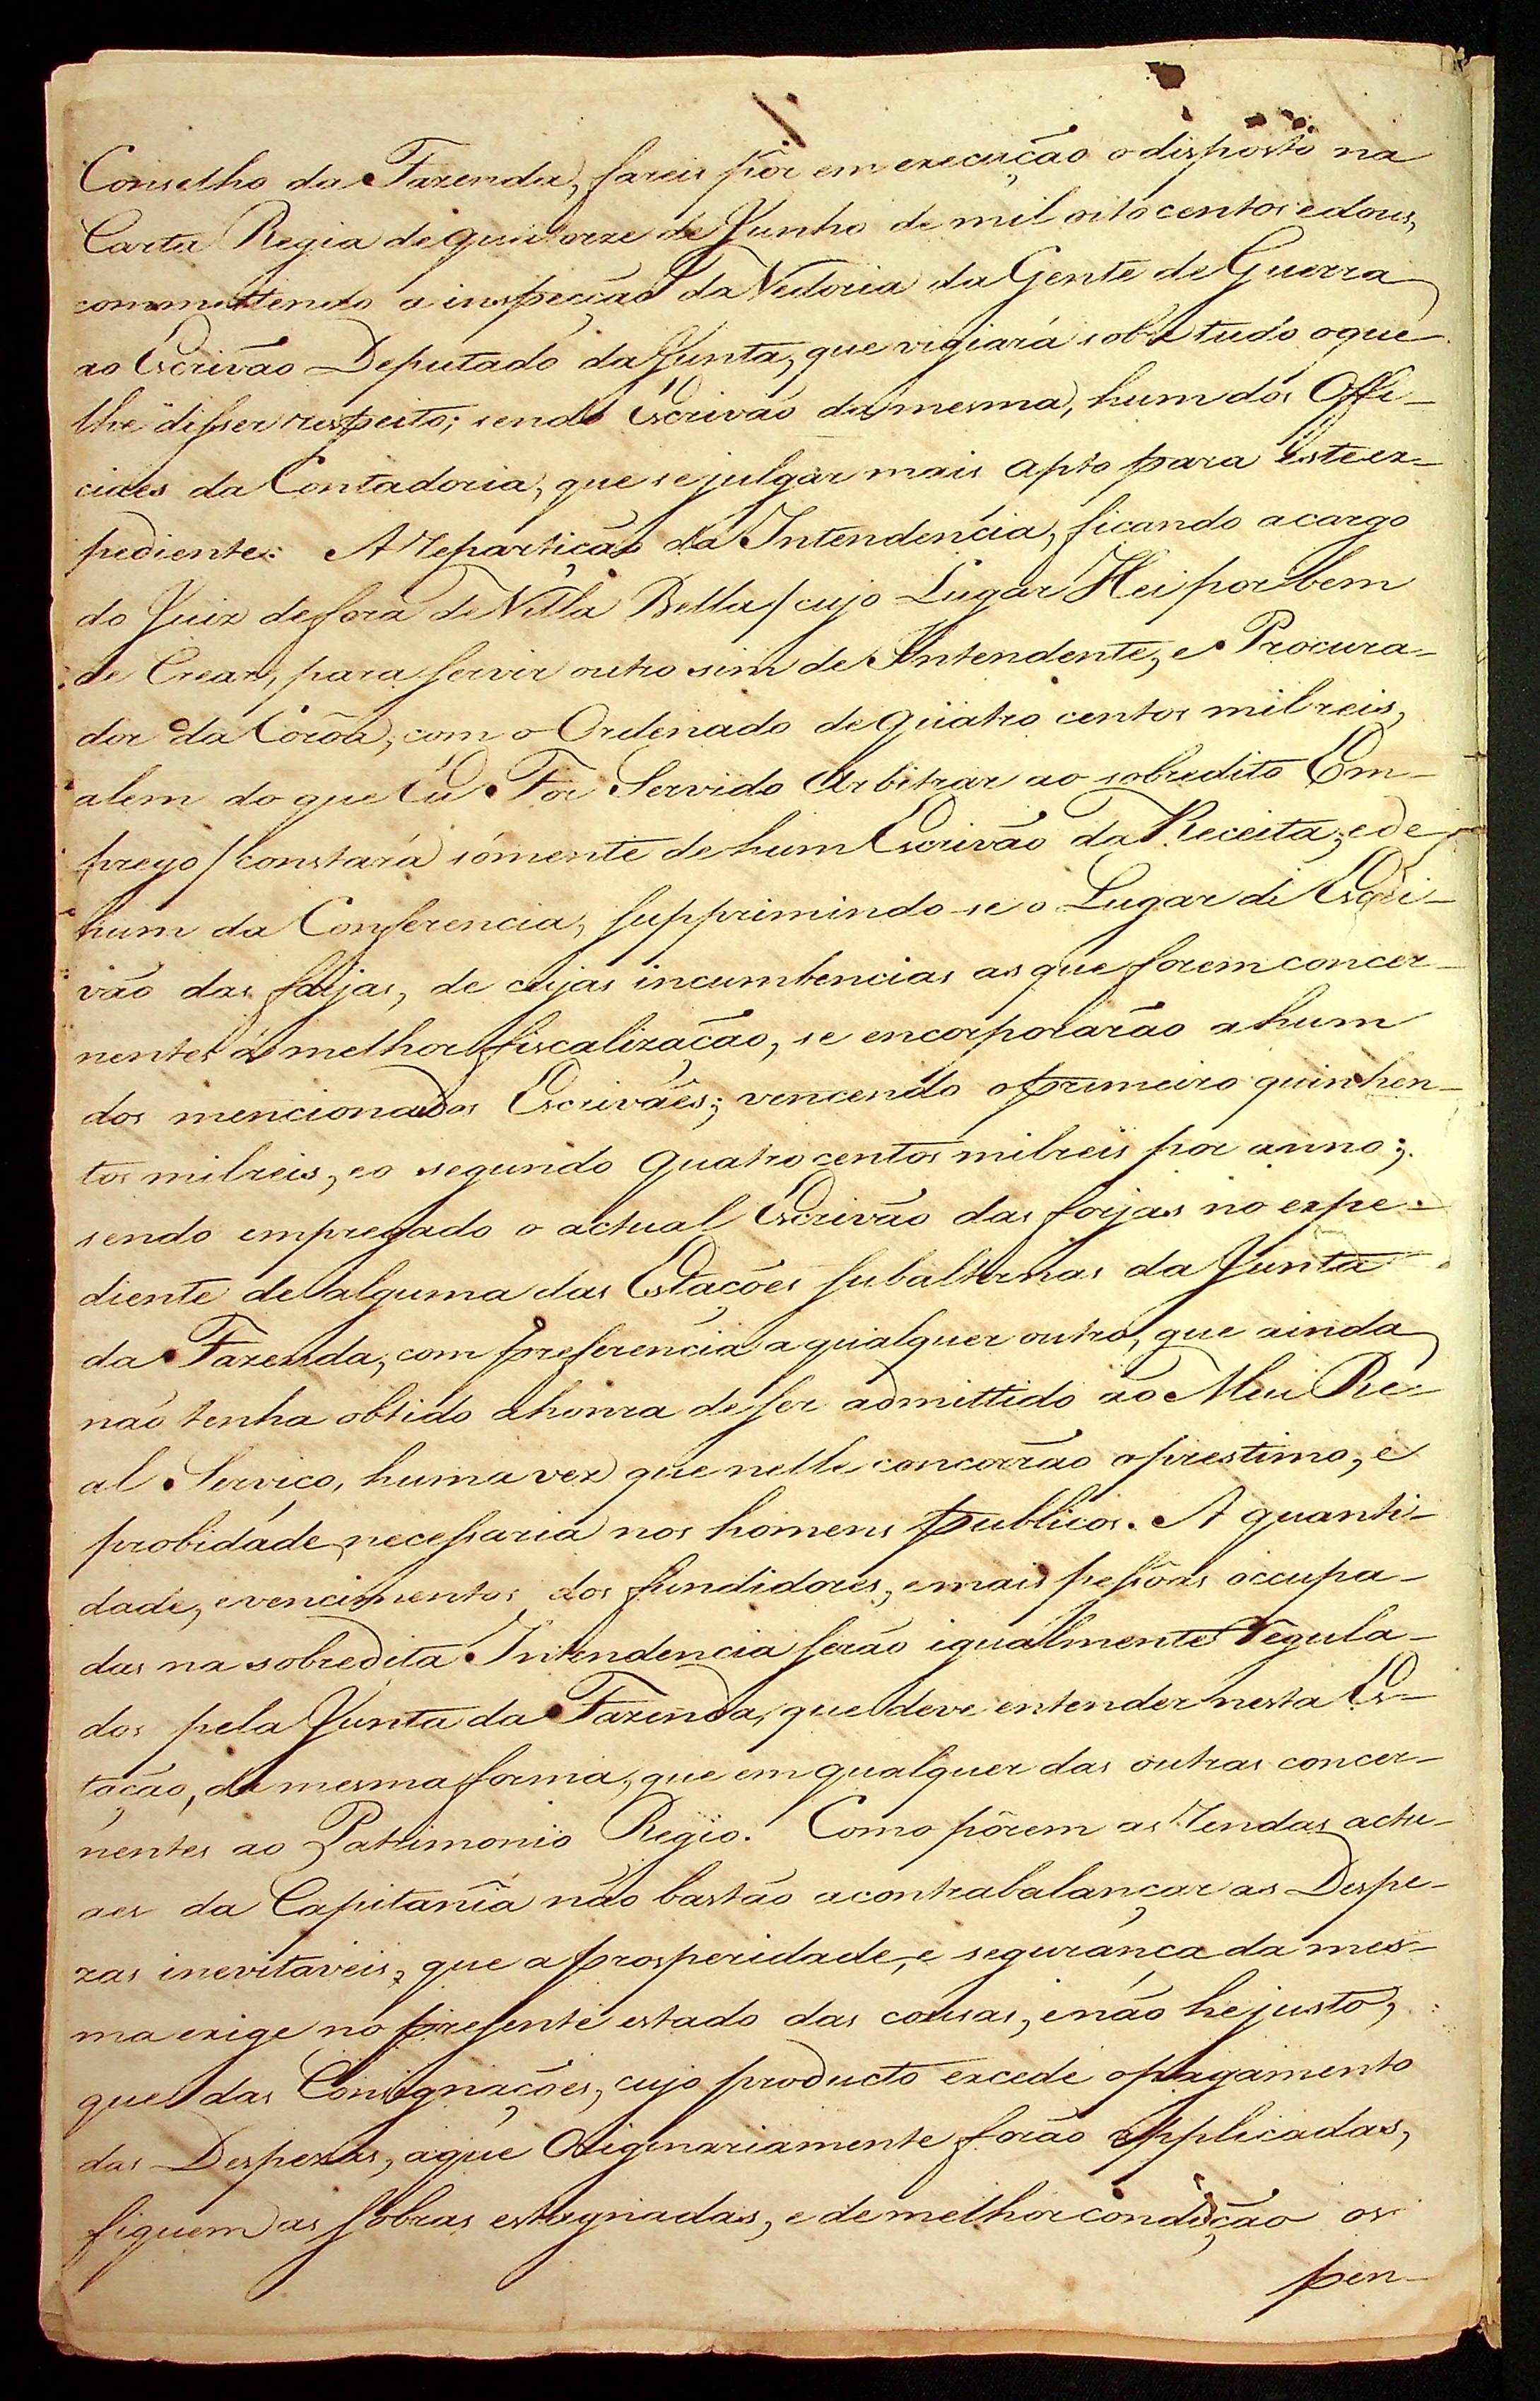 Conselho da Fazenda, fareis pôr em execução o disposto na
Carta Regia de quatorze de Junho de mil oito centos e dous,
commettendo a inspecção da Vedoria da Gente de Guerra
ao Escrivão Deputado da Junta, que vigiará sobre tudo o que
lhe disser respeito; sendo Escrivão da mesma, hum dos Offi-
ciaes da Contadoria, que se julgar mais apto para este ex-
pediente: A repartição da Intendencia, ficando a cargo
do Juiz de fora de Villa Bella / cujo Lugar Hei por bem
de Crear, para servir outro sim de Intendente, e Procura-
dor da Corôa, com o Ordenado de quatro centos mil reis,
alem do que Eu For Servido Arbitrar ao sobredito Em-
prego / constará sómente de hum Escrivão da Receita, e de
hum da Conferencia, supprimindo-se o Lugar de Escri-
vão das forjas, de cujas incumbencias as que forem concer-
nentes á melhor fiscalização, se encorporarão a hum
dos mencionados Escrivães; vencendo o primeiro quinhen-
tos mil reis, e o segundo quatro centos mil reis por anno;
sendo empregado o actual Escrivão das forjas no expe-
diente de alguma das Estações subalternas da Junta
da Fazenda, com preferencia a qualquer outro, que ainda
não tenha obtido a honra de ser admittido ao Meu Re-
al Serviço, huma vez que nelle concorrão o prestimo, e
probidade necessaria nos homens publicos. A quanti-
dade, e vencimentos dos fundidores, e mais pessôas occupa-
das na sobredita Intendencia serão igualmente regula-
dos pela Junta da Fazenda, que deve entender nesta Es-
tação, da mesma forma, que em qualquer das outras concer-
nentes ao Patrimonio Regio. Como pôrem as rendas actu-
aes da Capitania não bastão a contrabalançar as Despe-
zas inevitaveis, que a prosperidade, e segurança da mes-
ma exige no presente estado das cousas, e não he justo,
que das Consignações, cujo producto excede o pagamento
das Despezas, a que Originariamente forão applicadas,
fiquem as sobras estagnadas, e de melhor condição os
pen-